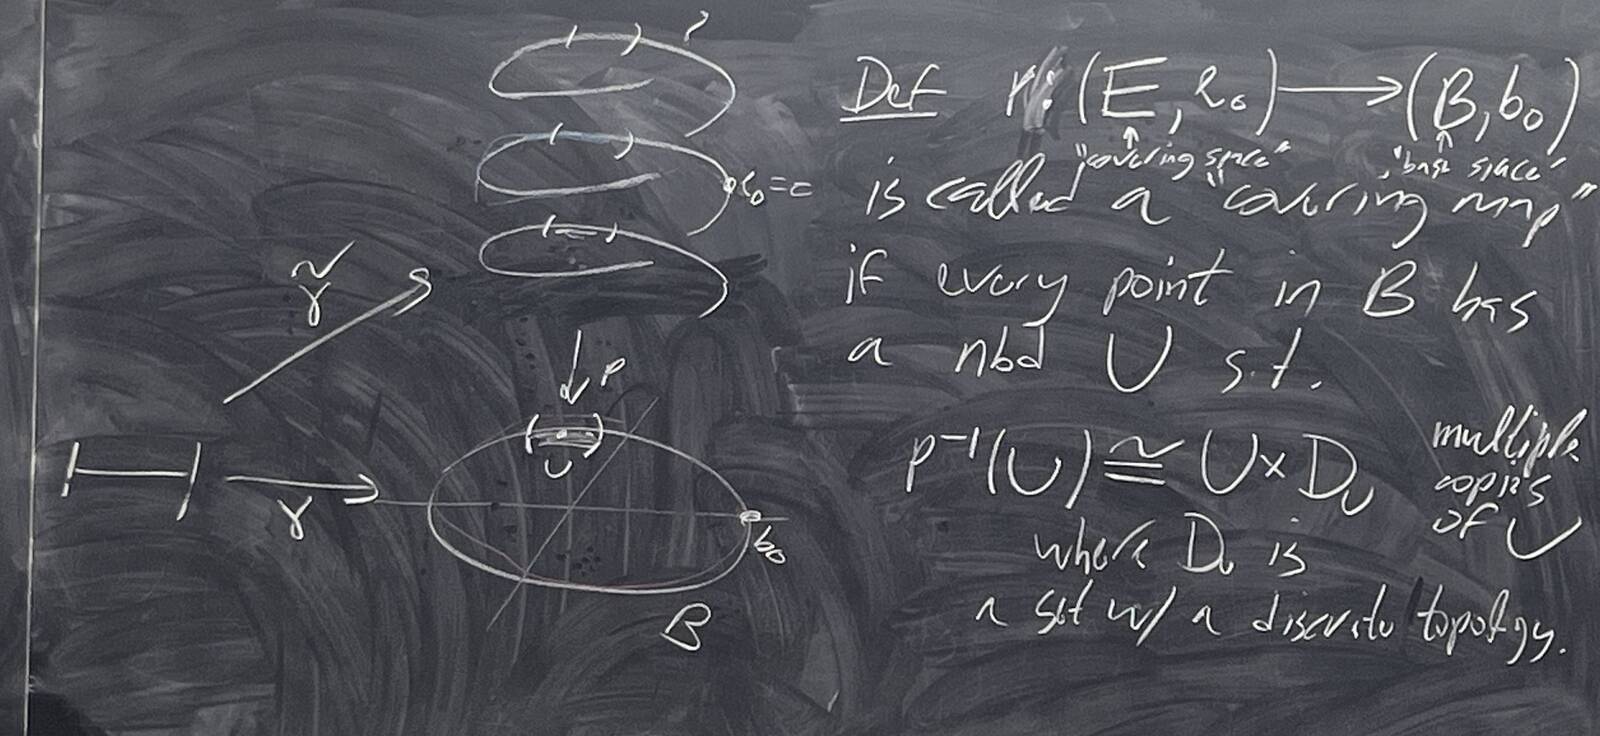 Def p: (E, e₀) ⟶ (B, b₀)
"covering space" "base space"
is called a "covering map"
if every point in B has
a nbd U s.t.
p⁻¹(U) ≅ U × D_U
multiple
copies
of U
where D_U is
a set w/ a discrete topology.
e₀ =
γ̃
p
U
γ
b₀
B